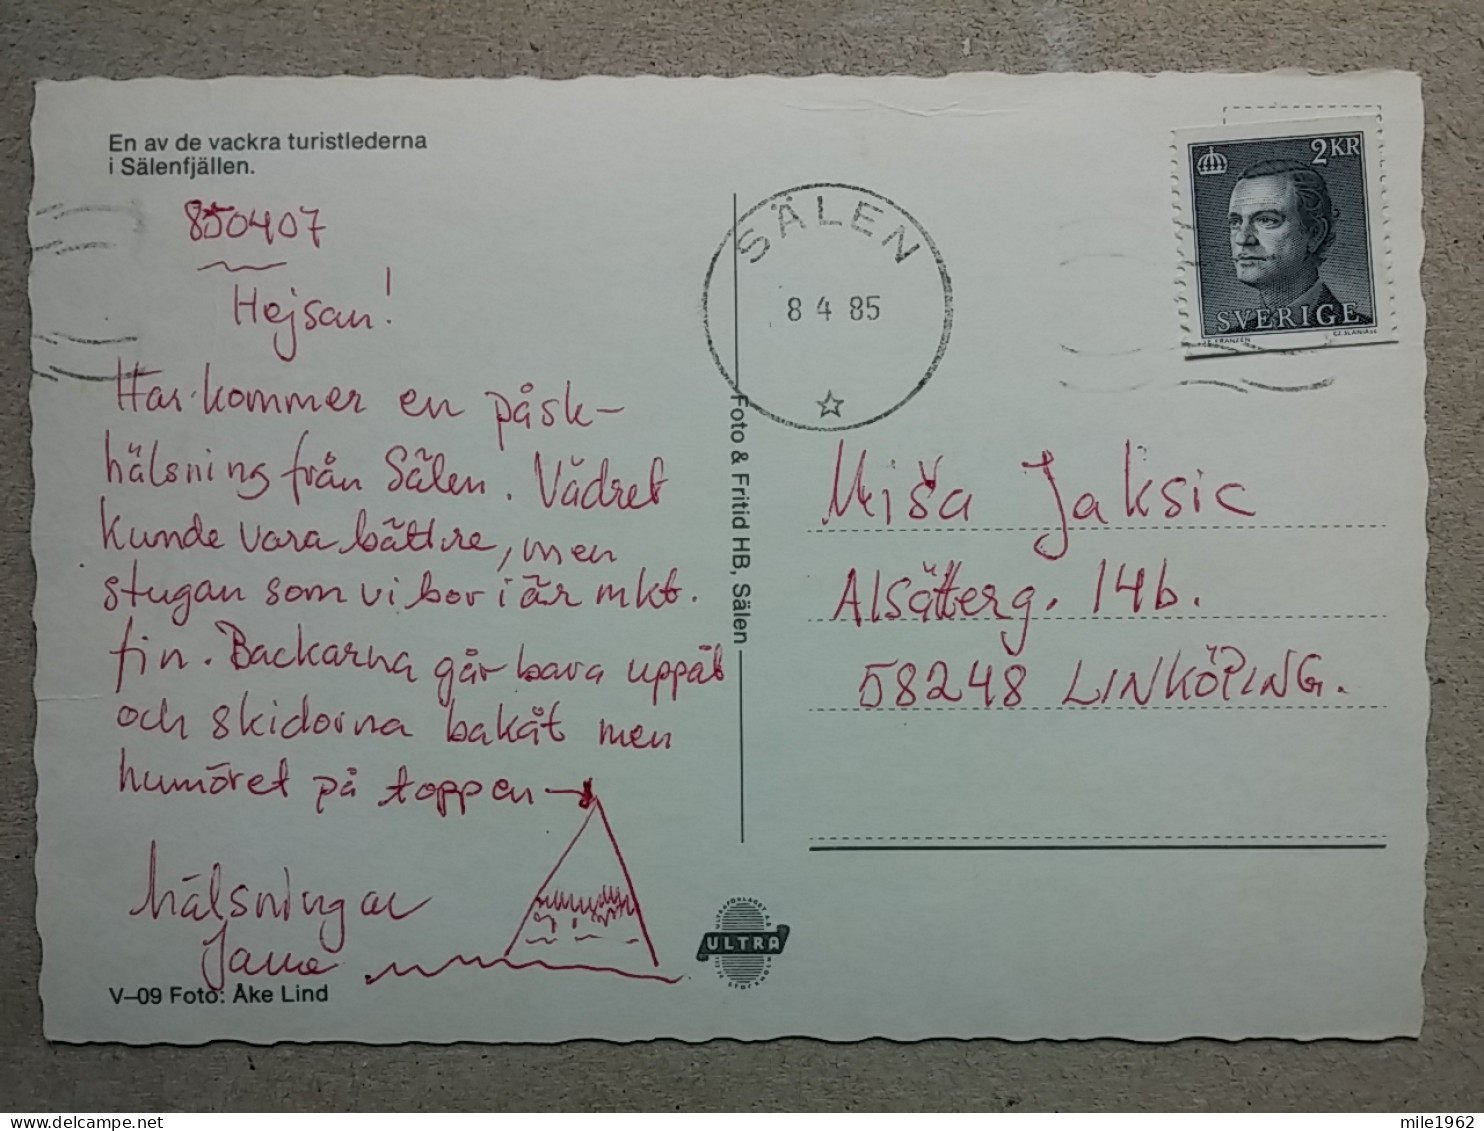 En av de vackra turistlederna
i Sälenfjällen.
850407
Hejsan!
Här kommer en påsk-
hälsning från Sälen. Vädret
kunde vara bättre, men
stugan som vi bor i är mkt.
fin. Backarna går bara uppåt
och skidorna bakåt men
humöret på toppen
hälsningar
V–09 Foto: Åke Lind
Foto & Fritid HB, Sälen
SÄLEN
8 4 85
2KR
SVERIGE
Miša Jaksic
Alsätterg. 14b.
58248 LINKÖPING.
ULTRA
mile1962